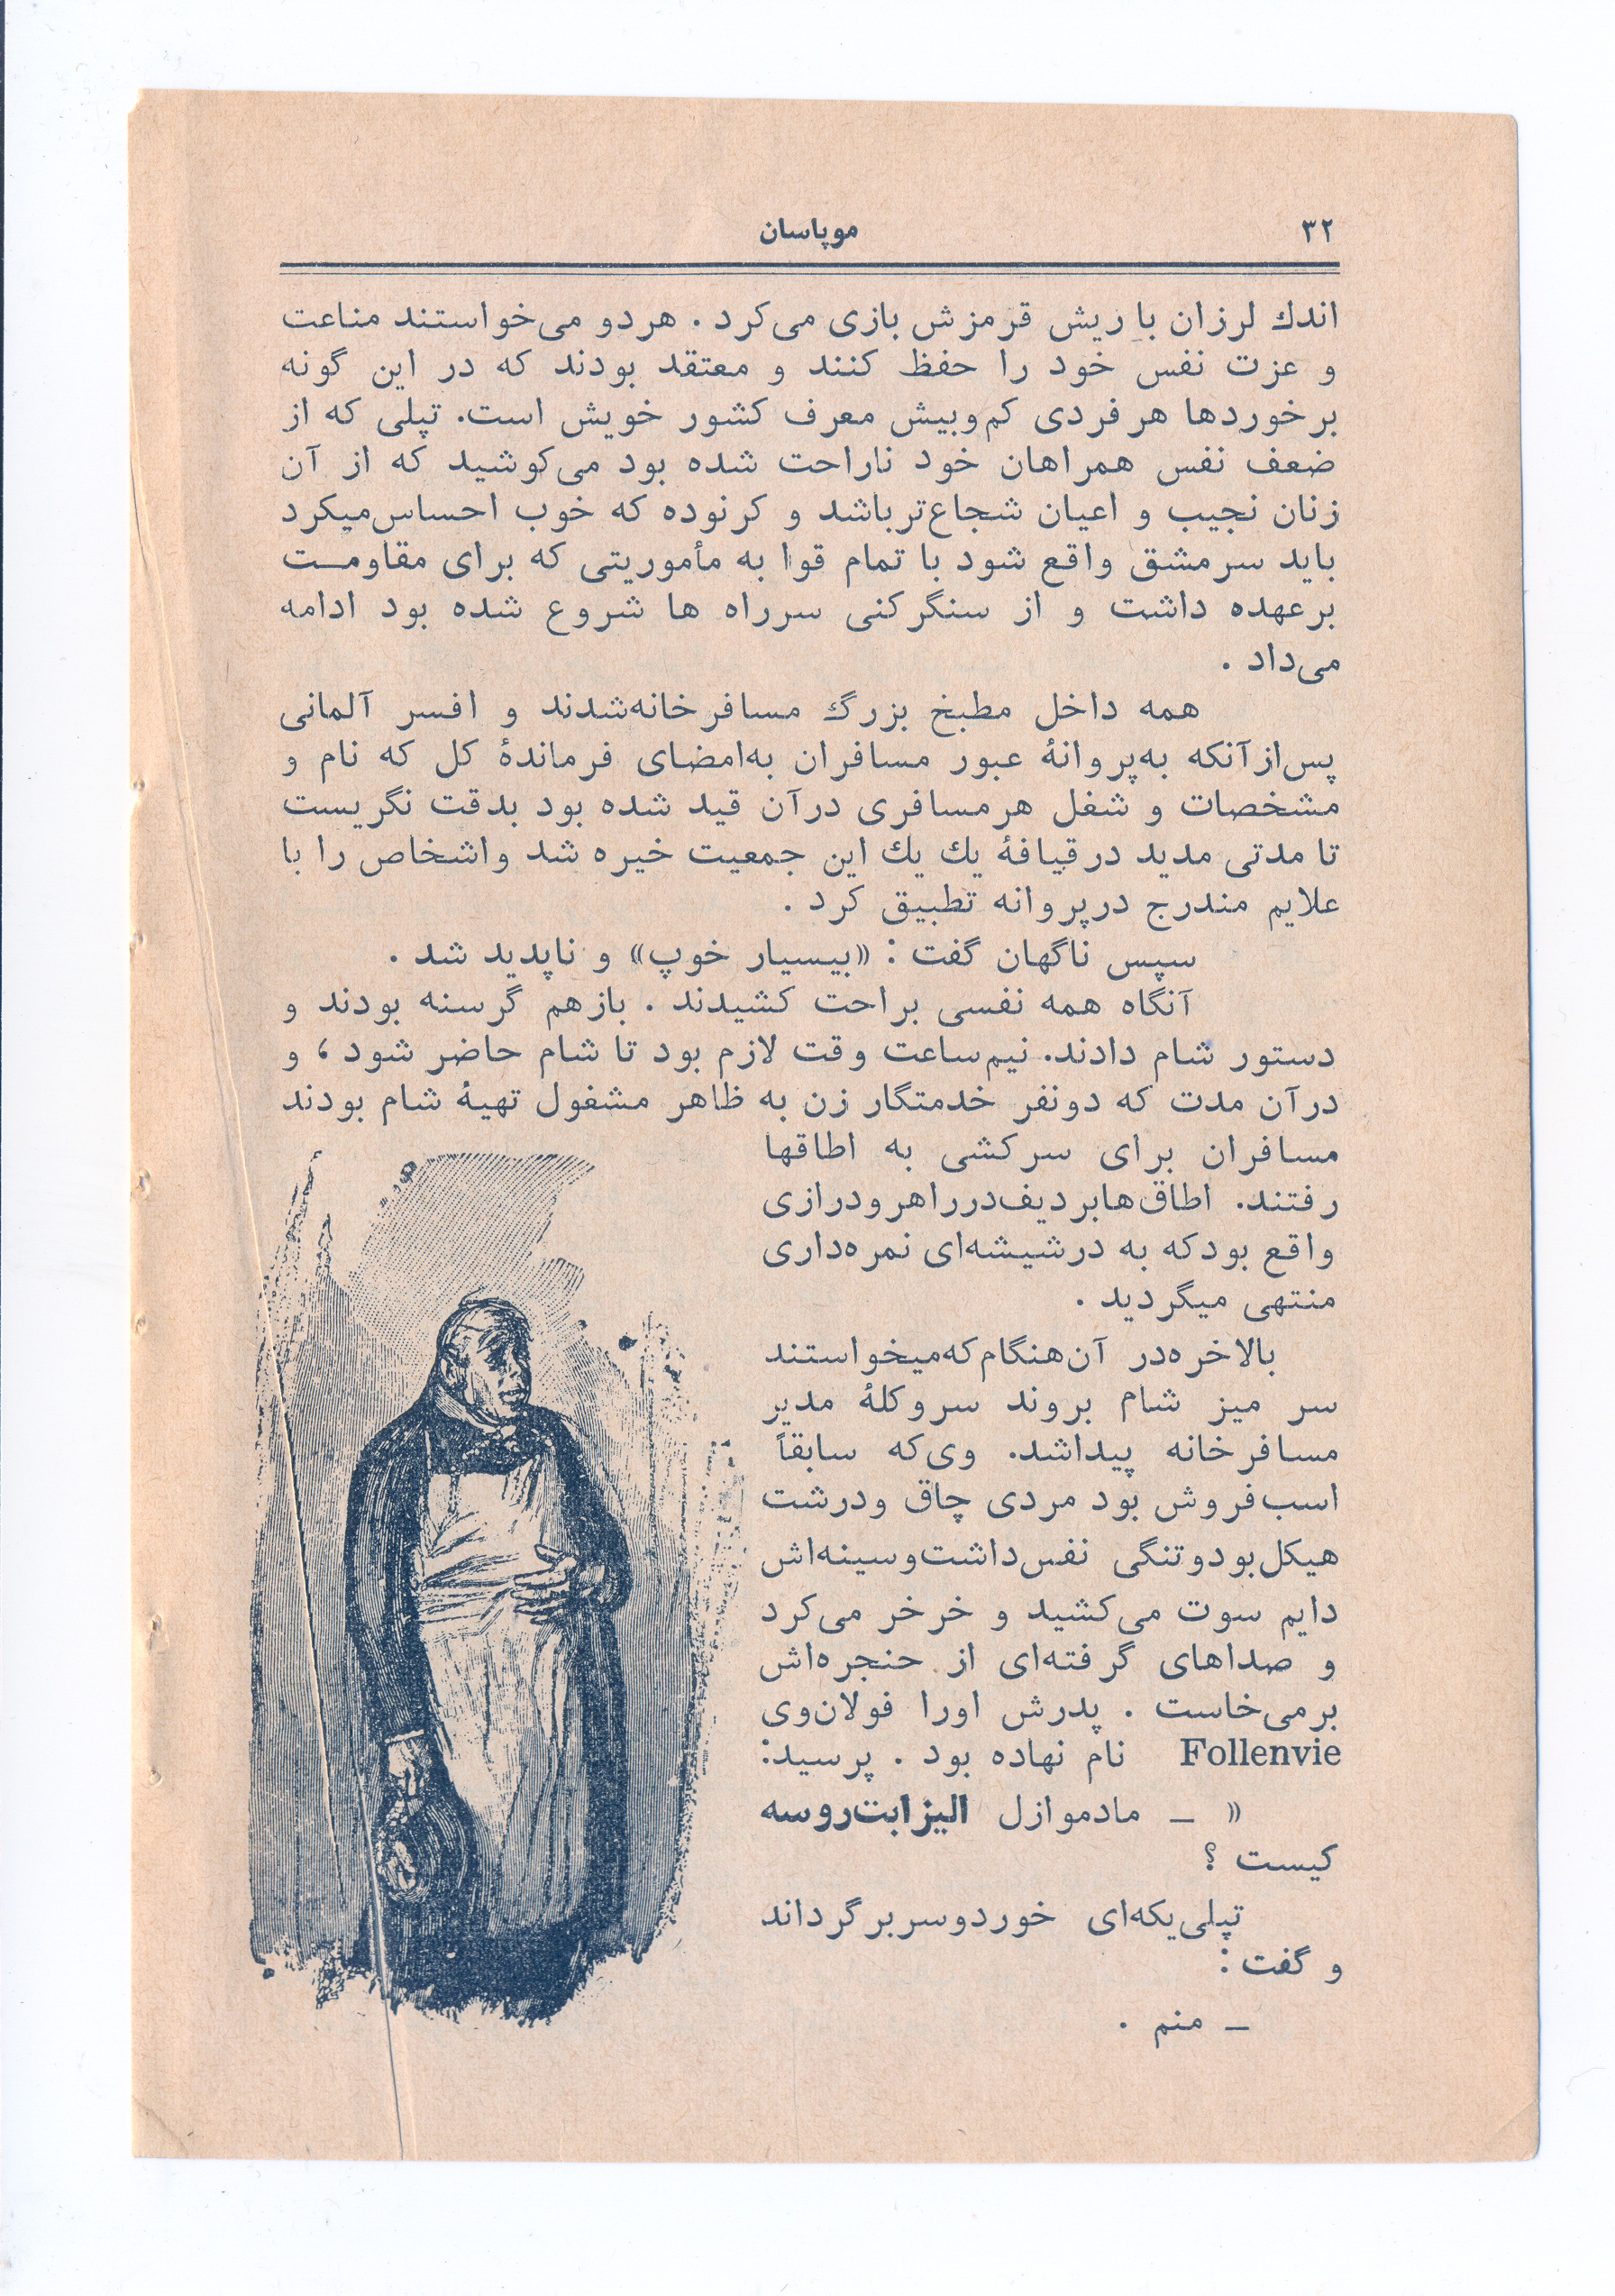 ۳۲
موپاسان
اندك لرزان با ریش قرمزش بازی می‌کرد . هردو می‌خواستند مناعت
و عزت نفس خود را حفظ کنند و معتقد بودند که در این گونه
برخوردها هر فردی کم‌وبیش معرف کشور خویش است. تپلی که از
ضعف نفس همراهان خود ناراحت شده بود می‌کوشید که از آن
زنان نجیب و اعیان شجاع‌تر باشد و کرنوده که خوب احساس‌میکرد
باید سرمشق واقع شود با تمام قوا به مأموریتی که برای مقاومت
برعهده داشت و از سنگرکنی سرراه ها شروع شده بود ادامه
می‌داد .
همه داخل مطبخ بزرگ مسافرخانه‌شدند و افسر آلمانی
پس‌ازآنکه به‌پروانهٔ عبور مسافران به‌امضای فرماندهٔ کل که نام و
مشخصات و شغل هرمسافری درآن قید شده بود بدقت نگریست
تا مدتی مدید درقیافهٔ یك یك این جمعیت خیره شد واشخاص را با
علایم مندرج درپروانه تطبیق کرد .
سپس ناگهان گفت : «بیسیار خوپ» و ناپدید شد .
آنگاه همه نفسی براحت کشیدند . بازهم گرسنه بودند و
دستور شام دادند. نیم‌ساعت وقت لازم بود تا شام حاضر شود ، و
درآن مدت که دونفر خدمتگار زن به ظاهر مشغول تهیهٔ شام بودند
مسافران برای سرکشی به اطاقها
رفتند. اطاق‌هابردیف‌درراهرودرازی
واقع بودکه به درشیشه‌ای نمره‌داری
منتهی میگردید .
بالاخره‌در آن‌هنگام‌که‌میخواستند
سر میز شام بروند سروکلهٔ مدیر
مسافرخانه پیداشد. وی‌که سابقاً
اسب‌فروش بود مردی چاق ودرشت
هیکل‌بودوتنگی نفس‌داشت‌وسینه‌اش
دایم سوت می‌کشید و خرخر می‌کرد
و صداهای گرفته‌ای از حنجره‌اش
برمی‌خاست . پدرش اورا فولان‌وی
Follenvie نام نهاده بود . پرسید:
« ـ مادموازل الیزابت‌روسه
کیست ؟
تپلی‌یکه‌ای خوردوسربرگرداند
و گفت :
ـ منم .